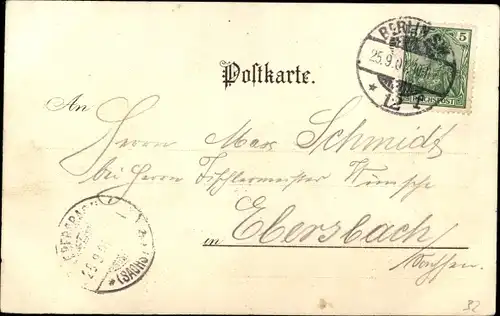 BERLIN S.
25.9.0
12
5
REICHSPOST
Postkarte.
An
Herrn Max Schmidt
bei Herrn Tischlermeister Wünsche
in Ebersbach
EBERSBACH
25.9.0
(SACHS)
32